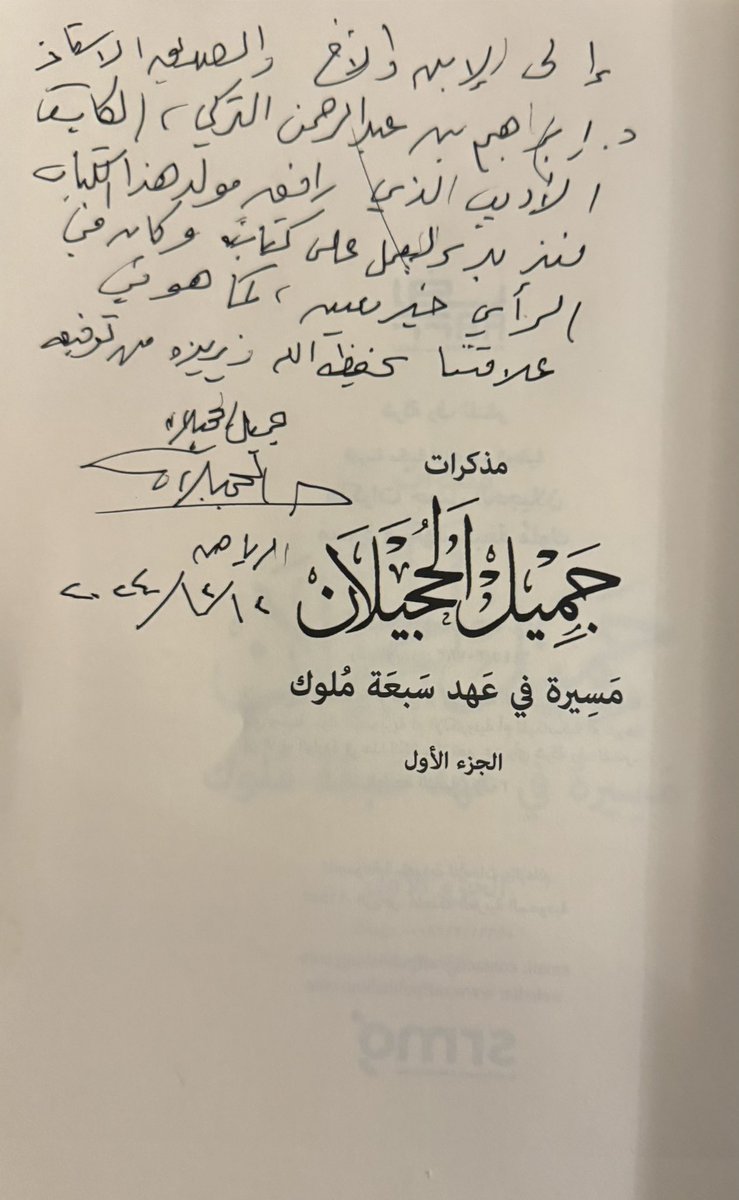 إلى الإبن والأخ والصديق الاستاذ
د. إبراهيم بن عبدالرحمن التركي، الكاتب
الأديب الذي رافق مولد هذا الكتاب
منذ بدء العمل على كتابته وكان في
الرأي خير معين، كما هو في
علاقتنا يحفظه الله ويزيده من توفيقه
جميل الحجيلان
الحجيلان
الرياض
مذكرات
جَمِيل الحُجَيلَان
مَسِيرة في عَهد سَبعَة مُلوك
الجزء الأول
srmg